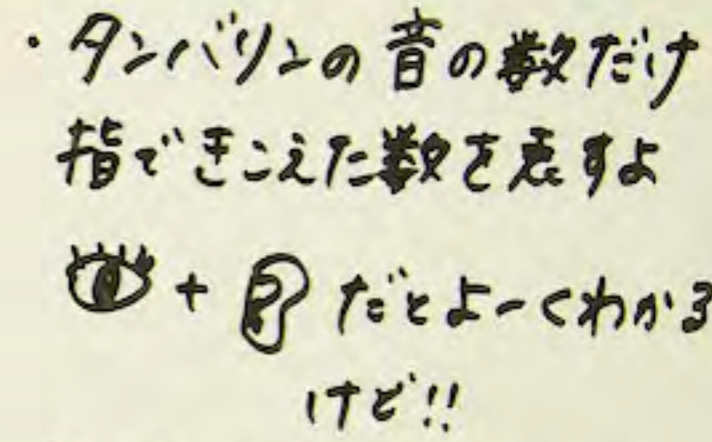 ・タンバリンの音の数だけ
指できこえた数を表すよ
+ だとよーくわかる
けど!!